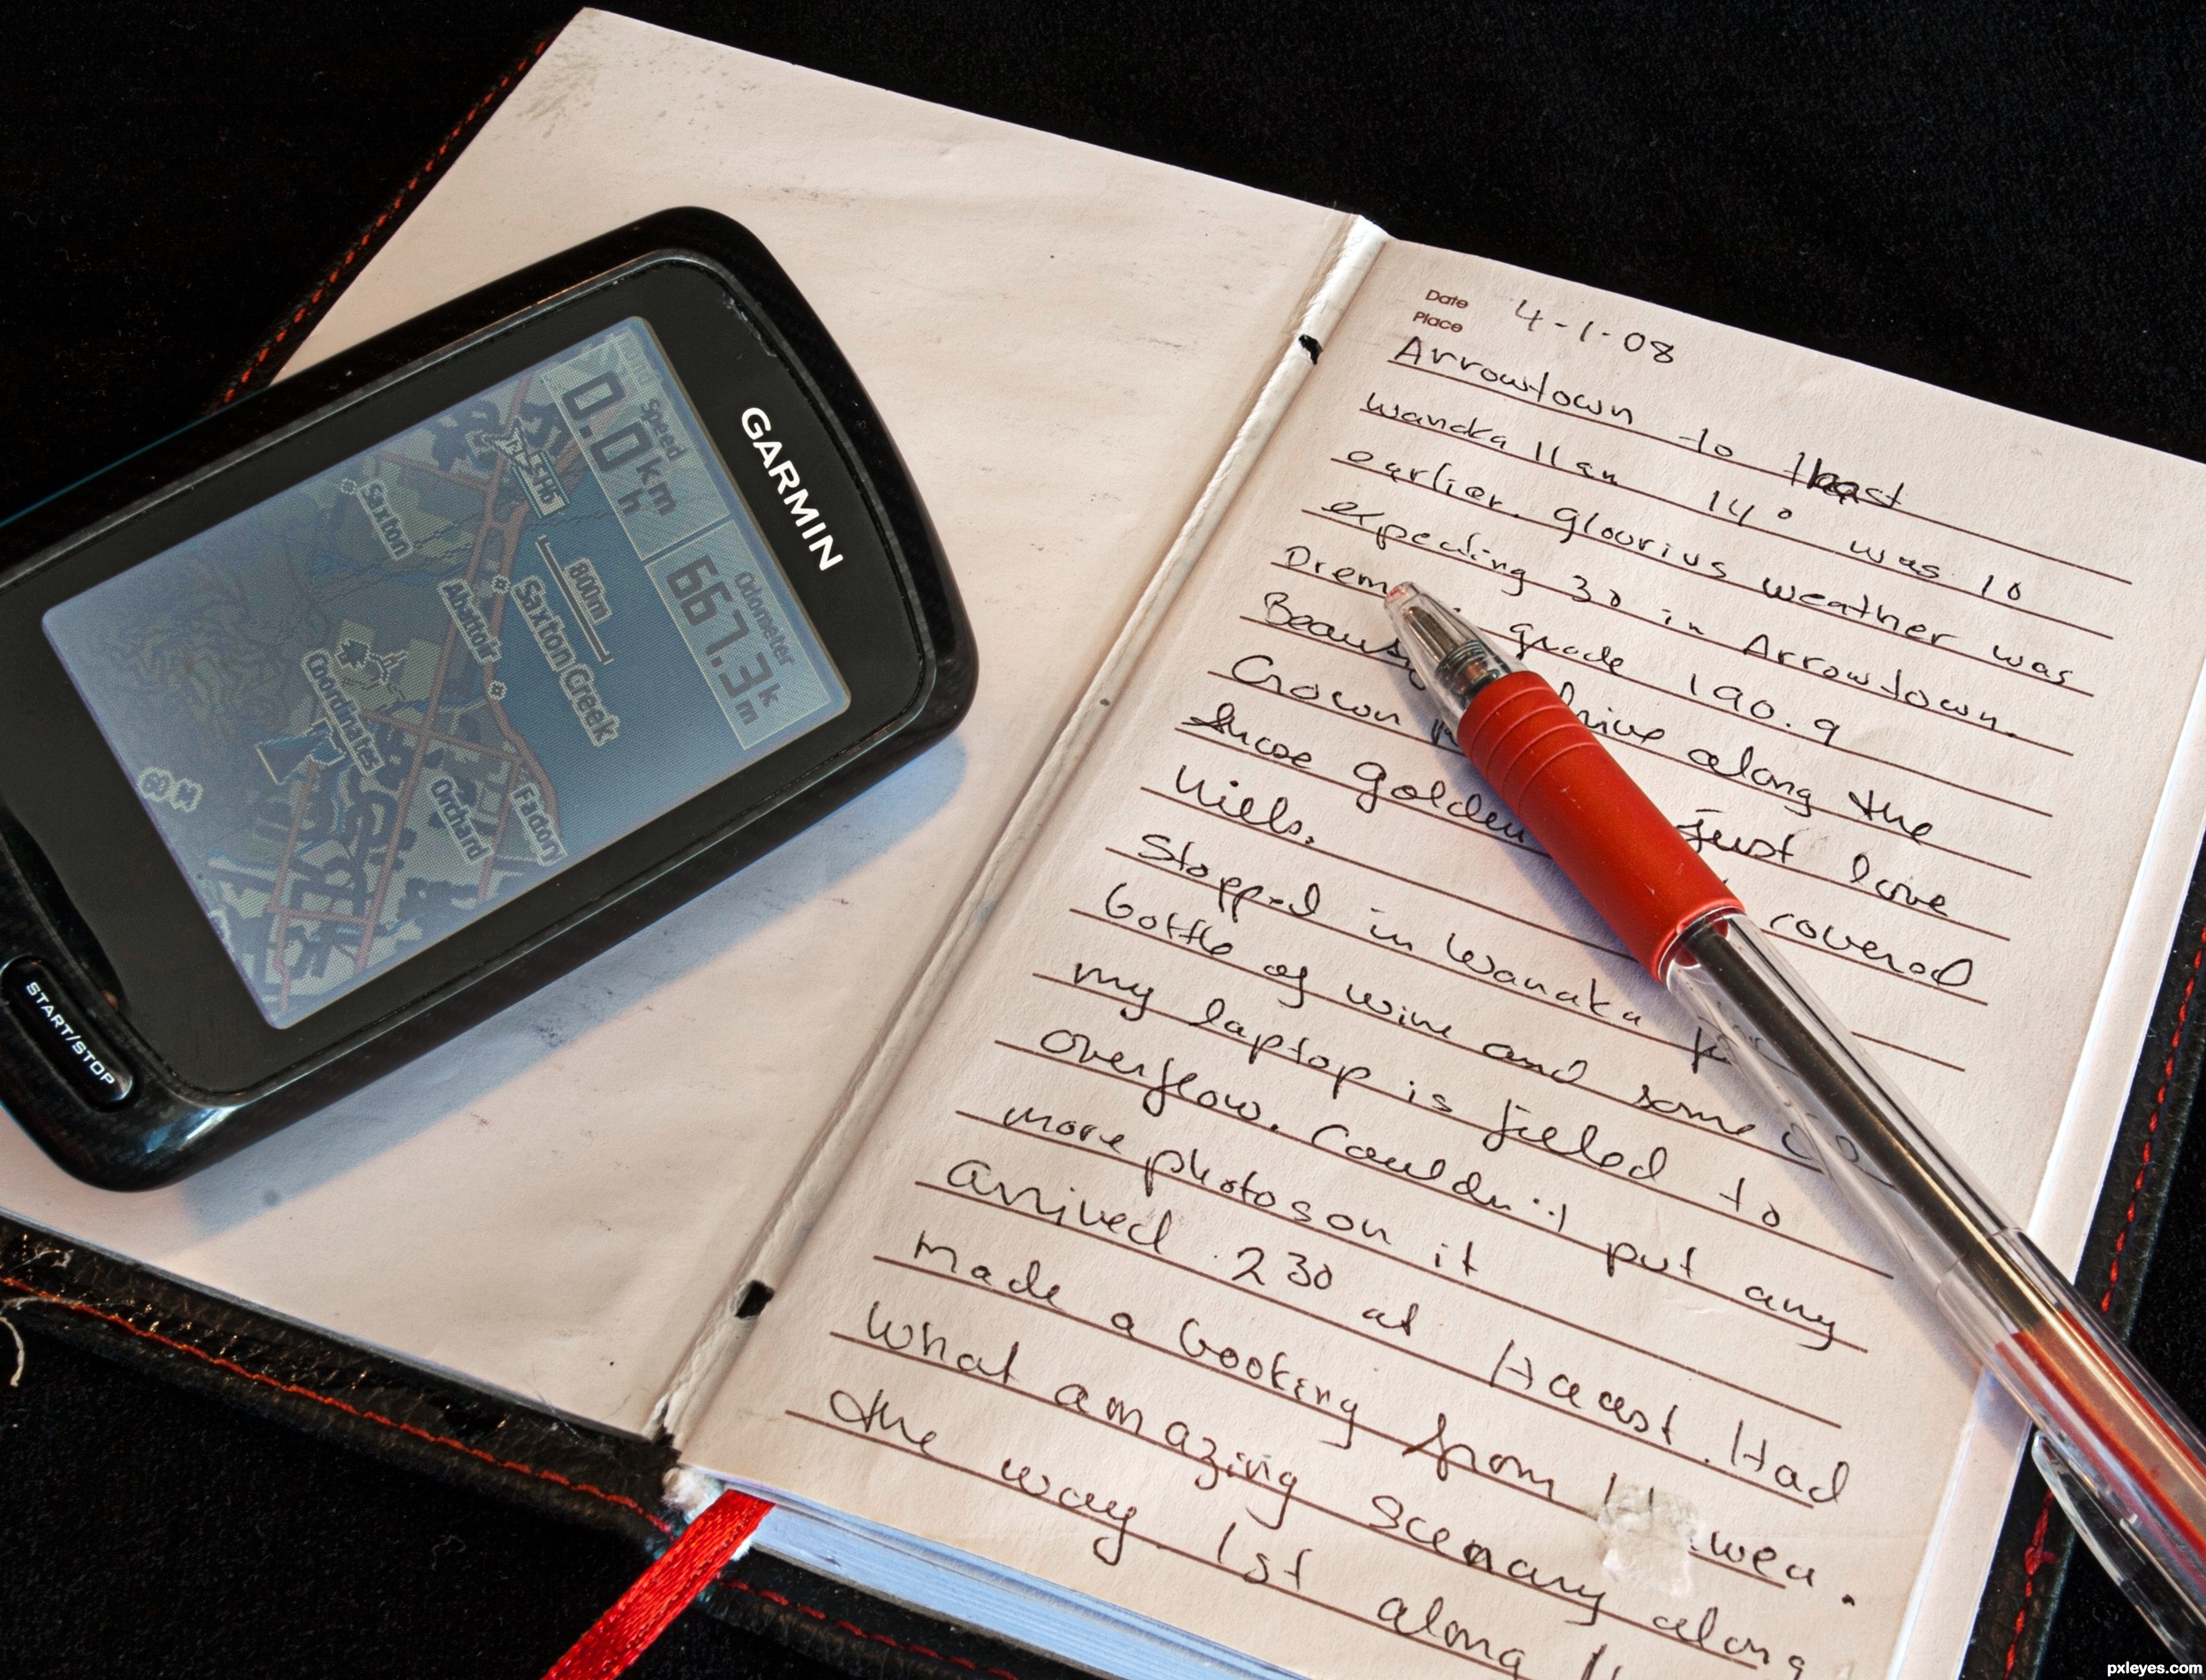 GARMIN
Speed
0.0 km h
Odometer
667.3 km
SH6
800m
Saxton
Abattoir
Saxton Creek
Coordinates
60 M
Orchard
Factory
START/STOP
Date 4-1-08
Place
Arrowtown to Haast
Wanaka 11am 14° was 10
earlier. glourius weather was
expecting 30 in Arrowtown.
grade 190.9
drive along the
Crown just love
those golden covered
hills.
Stopped in Wanaka for
bottle of wine and some
my laptop is filled to
overflow. Couldn't put any
more photos on it
arrived 230 at Haast. Had
made a booking from
What amazing scenary along
the way. 1st along
pxleyes.com